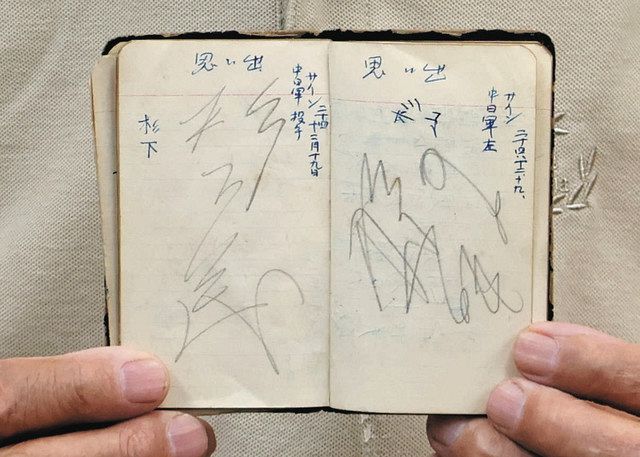 思い出
サイン 二十四 十二月十九日
中日軍 投手
杉下
杉下茂
思い出
サイン 二十四、十二、十九、
中日軍 左